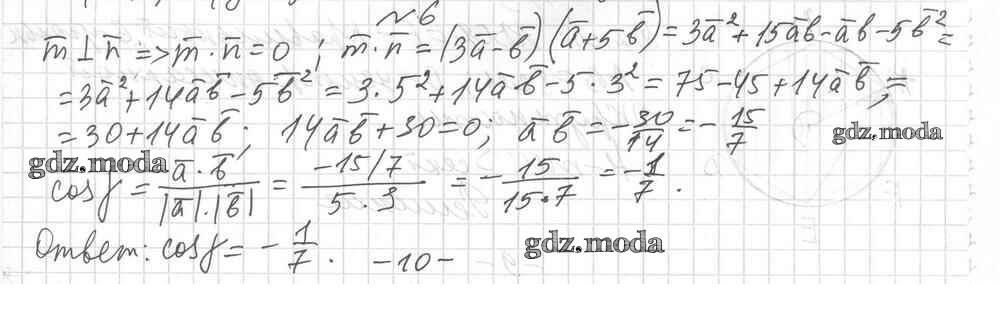 №6
m̄ ⊥ n̄ => m̄ · n̄ = 0 ; m̄ · n̄ = (3ā - b̄)(ā + 5b̄) = 3ā² + 15āb̄ - āb̄ - 5b̄² =
= 3ā² + 14āb̄ - 5b̄² = 3·5² + 14āb̄ - 5·3² = 75 - 45 + 14āb̄ =
= 30 + 14āb̄ ; 14āb̄ + 30 = 0; āb̄ = -30/14 = -15/7
gdz.moda
gdz.moda
cosγ = ā·b̄ / |ā|·|b̄| = -15/7 / 5·3 = -15/15·7 = -1/7 .
Ответ: cosγ = -1/7 .
gdz.moda
-10-